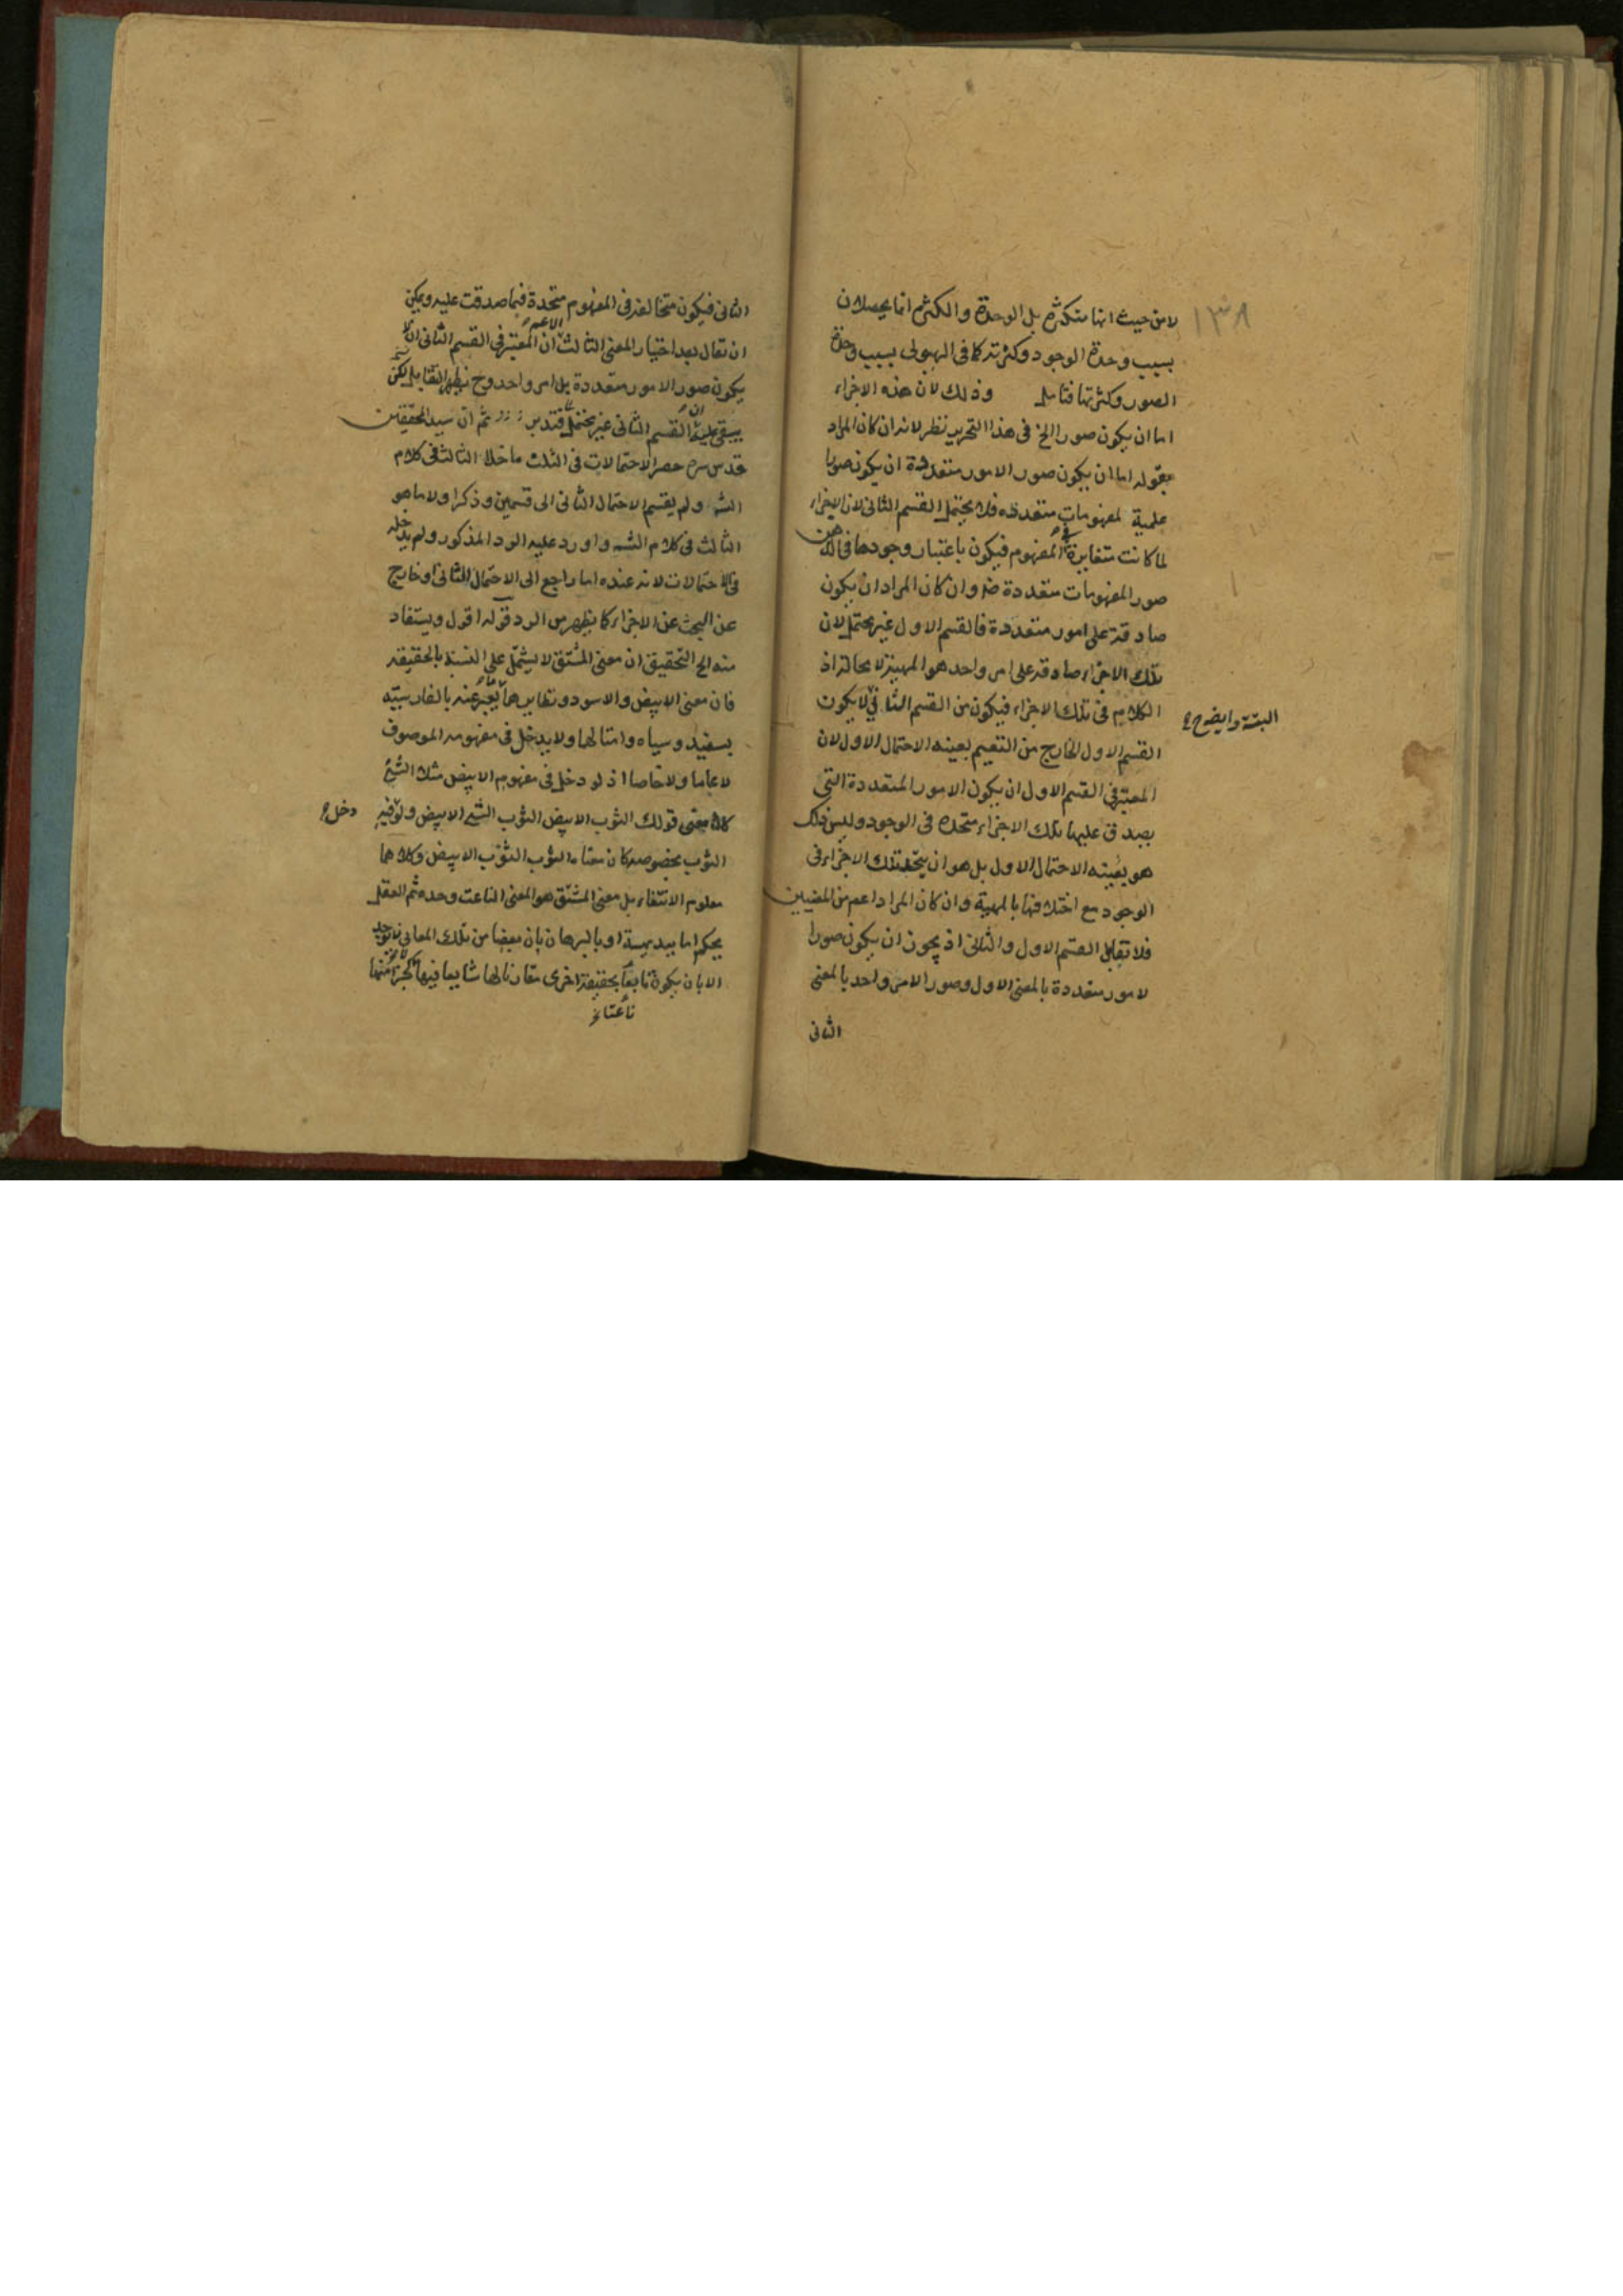 ١٣٨
لا من حيث انها متكثرة بل الوحدة والكثرة انما يحصلان
بسبب وحدة الوجود وكثرته كما فى الهيولى بسبب وحدة
الصور وكثرتها فتامل وذلك لان هذه الاجزاء
اما ان يكون صور الخ فى هذا التحرير نظر لانه ان كان المراد
بقوله اما ان يكون صور الامور متعددة ان يكون صورا
علمية لمفهومات متعددة فلا يحتمل القسم الثانى لان الاجزاء
لما كانت متغايرة فى المفهوم فيكون باعتبار وجودها فى الذهن
صور المفهومات متعددة ضر وان كان المراد ان يكون
صادقة على امور متعددة فالقسم الاول غير محتمل لان
تلك الاجزاء صادقة على امر واحد هو المهية لا محالة اذ
الكلام فى تلك الاجزاء فيكون من القسم الثانى لا يكون
البتة وايضا ح
القسم الاول الخارج من التقسيم بعينه الاحتمال الاول لان
المعتبر فى القسم الاول ان يكون الامور المتعددة التى
يصدق عليها تلك الاجزاء متحدة فى الوجود وليس ذلك
هو بعينه الاحتمال الاول بل هو ان يتحد تلك الاجزاء فى
الوجود مع اختلافها بالمهية وان كان المراد اعم من المعنيين
فلا تقابل القسم الاول والثانى اذ يجوز ان يكون صورا
لامور متعددة بالمعنى الاول وصور الامر واحد بالمعنى
الثانى
الثانى فيكون متخالفة فى المفهوم متحدة فيما صدقت عليه ويمكن
ان يقال بعد اختيار المعنى الثالث ان الاعم المعتبر فى القسم الثانى ان لا
يكون صور الامور متعددة بل امر واحد وح يظهر التقابل لكن
يبقى عليه ان القسم الثانى غير محتمل فتدبر ثم ان سيد المحققين
قدس سره حصر الاحتمالات فى الثلث ما خلا الثالث فى كلام
الشه ولم يقسم الاحتمال الثانى الى قسمين وذكر اولا ما هو
الثالث فى كلام الشه واورد عليه الرد المذكور ولم يدخله
فى الاحتمالات لانه عنده اما راجع الى الاحتمال الثانى او خارج
عن البحث عن الاجزاء كما يظهر من الرد قوله اقول ويستفاد
منه الخ التحقيق ان معنى المشتق لا يشتمل على النسبة بالحقيقة
فان معنى الابيض والاسود ونظايرهما ما يعبر عنه بالفارسية
بسفيد وسياه وامثالها ولا يدخل فى مفهومه الموصوف
لا عاما ولا خاصا اذ لو دخل فى مفهوم الابيض مثلا الشئ
كان معنى قولك الثوب الابيض الثوب الشئ الابيض ولو فيه
دخل
الثوب بخصوصه كان معناه الثوب الثوب الابيض وكلاهما
معلوم الانتفاء بل معنى المشتق هو المعنى الناعت وحده ثم العقل
يحكم اما ببديهة او بالبرهان بان بعضا من تلك المعانى لا يوجد
الا بان يكون تابعا بحقيقة اخرى مقارنا لها شايعا فيها لا كجزء منها
ناعتا